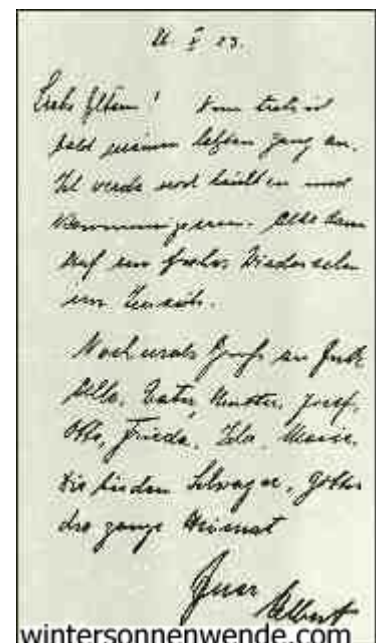 26. V 23.
Liebe Eltern! Nun trete ich
bald meinen letzten Gang an.
Ich werde noch beichten und
kommunizieren. Also dann
Auf ein frohes Wiedersehen
im Jenseits.
Noch einmal Gruß an Euch
Alle, Vater, Mutter, Josef,
Otto, Frieda, Ida, Marie,
die beiden Schwager, Götter
die ganze Heimat
Euer Albert
wintersonnenwende.com